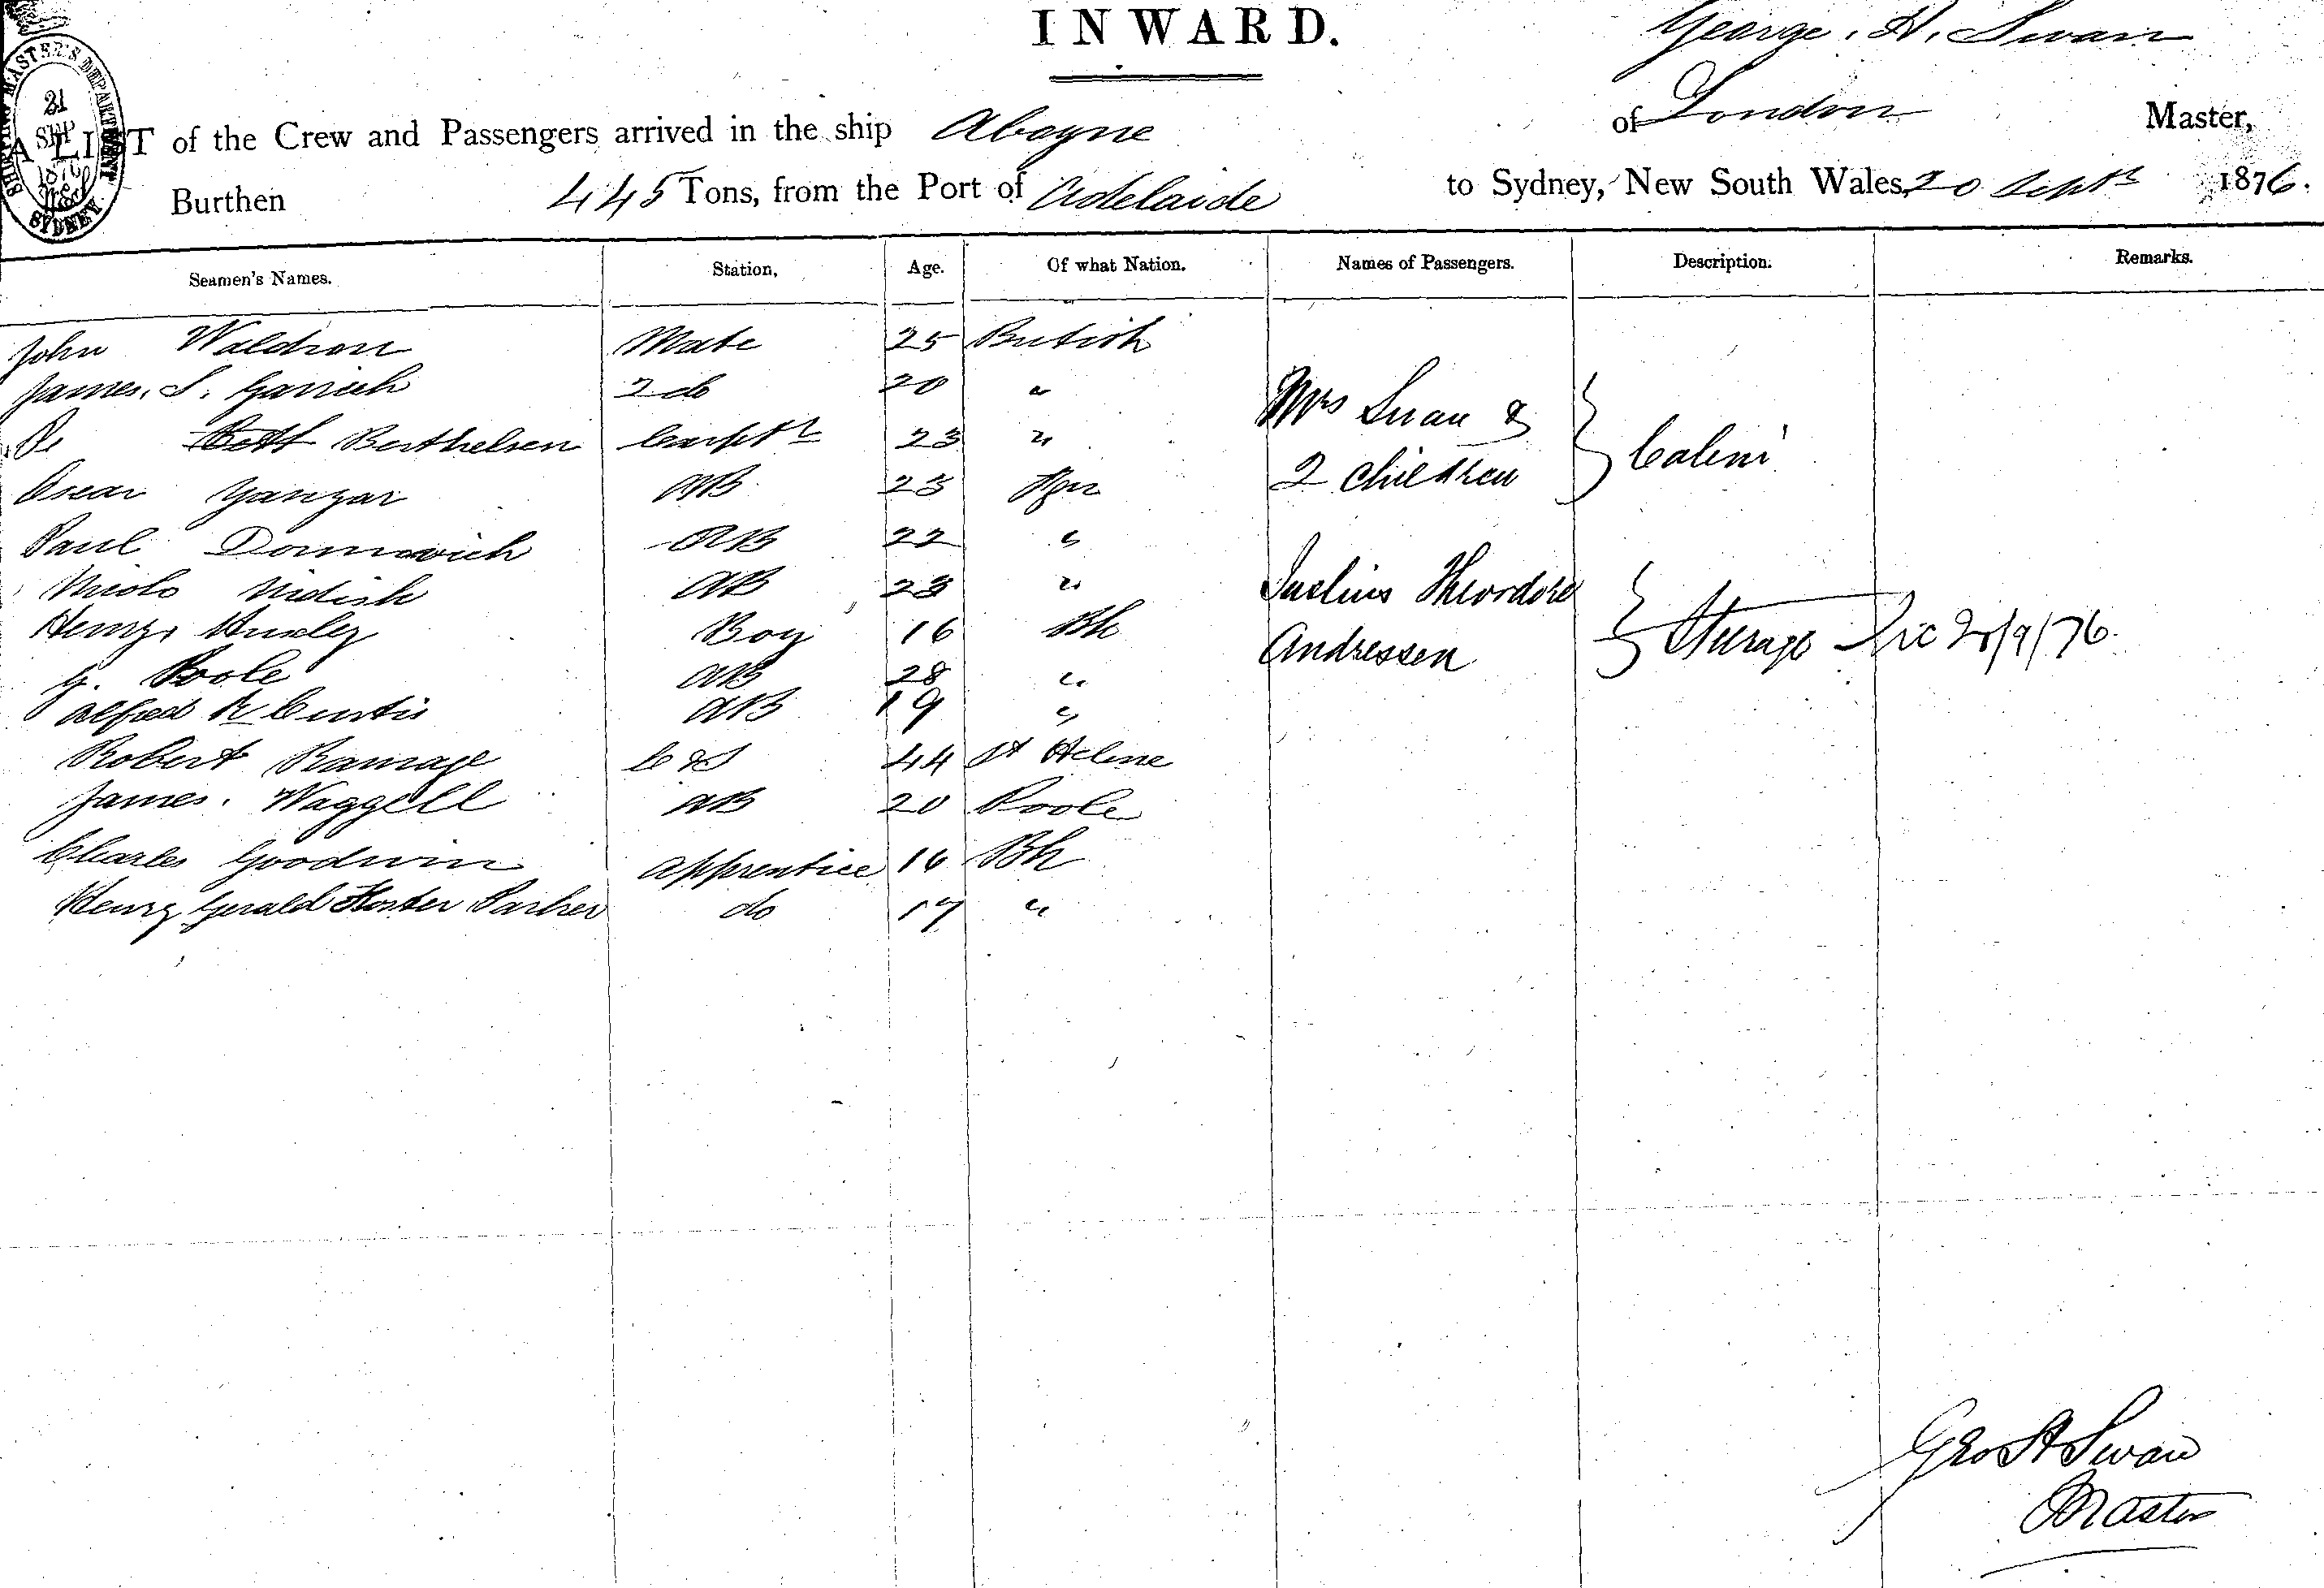 INWARD.
George. H. Swan
A LIST of the Crew and Passengers arrived in the ship Aboyne of London Master,
Burthen 445 Tons, from the Port of Adelaide to Sydney, New South Wales, 20 Septr 1876.
SHIPPING MASTER'S DEPARTMENT
21
SEP
1876
SYDNEY
Seamen's Names. Station, Age. Of what Nation. Names of Passengers. Description. Remarks.
John Waldron Mate 25 British
James. S. Garrick 2 do 20 "
Berthelsen Carptr 23 "
Oscar Yangar AB 23
Paul AB 22 "
Nicolo AB 23 "
Henry Huxley Boy 16 Bh
G. Poole AB 28 "
Alfred R Curtis AB 19 "
Robert Ramage C & S 44 St Helene
James. Waggell AB 20 Poole
Charles Goodwin Apprentice 16 Bh
Henry Gerald Foster Parker do 17 "
Mrs Swan &
2 Children
Cabin
Julius Theordore
Andressen
Steerage
20/9/76.
Geo H Swan
Master